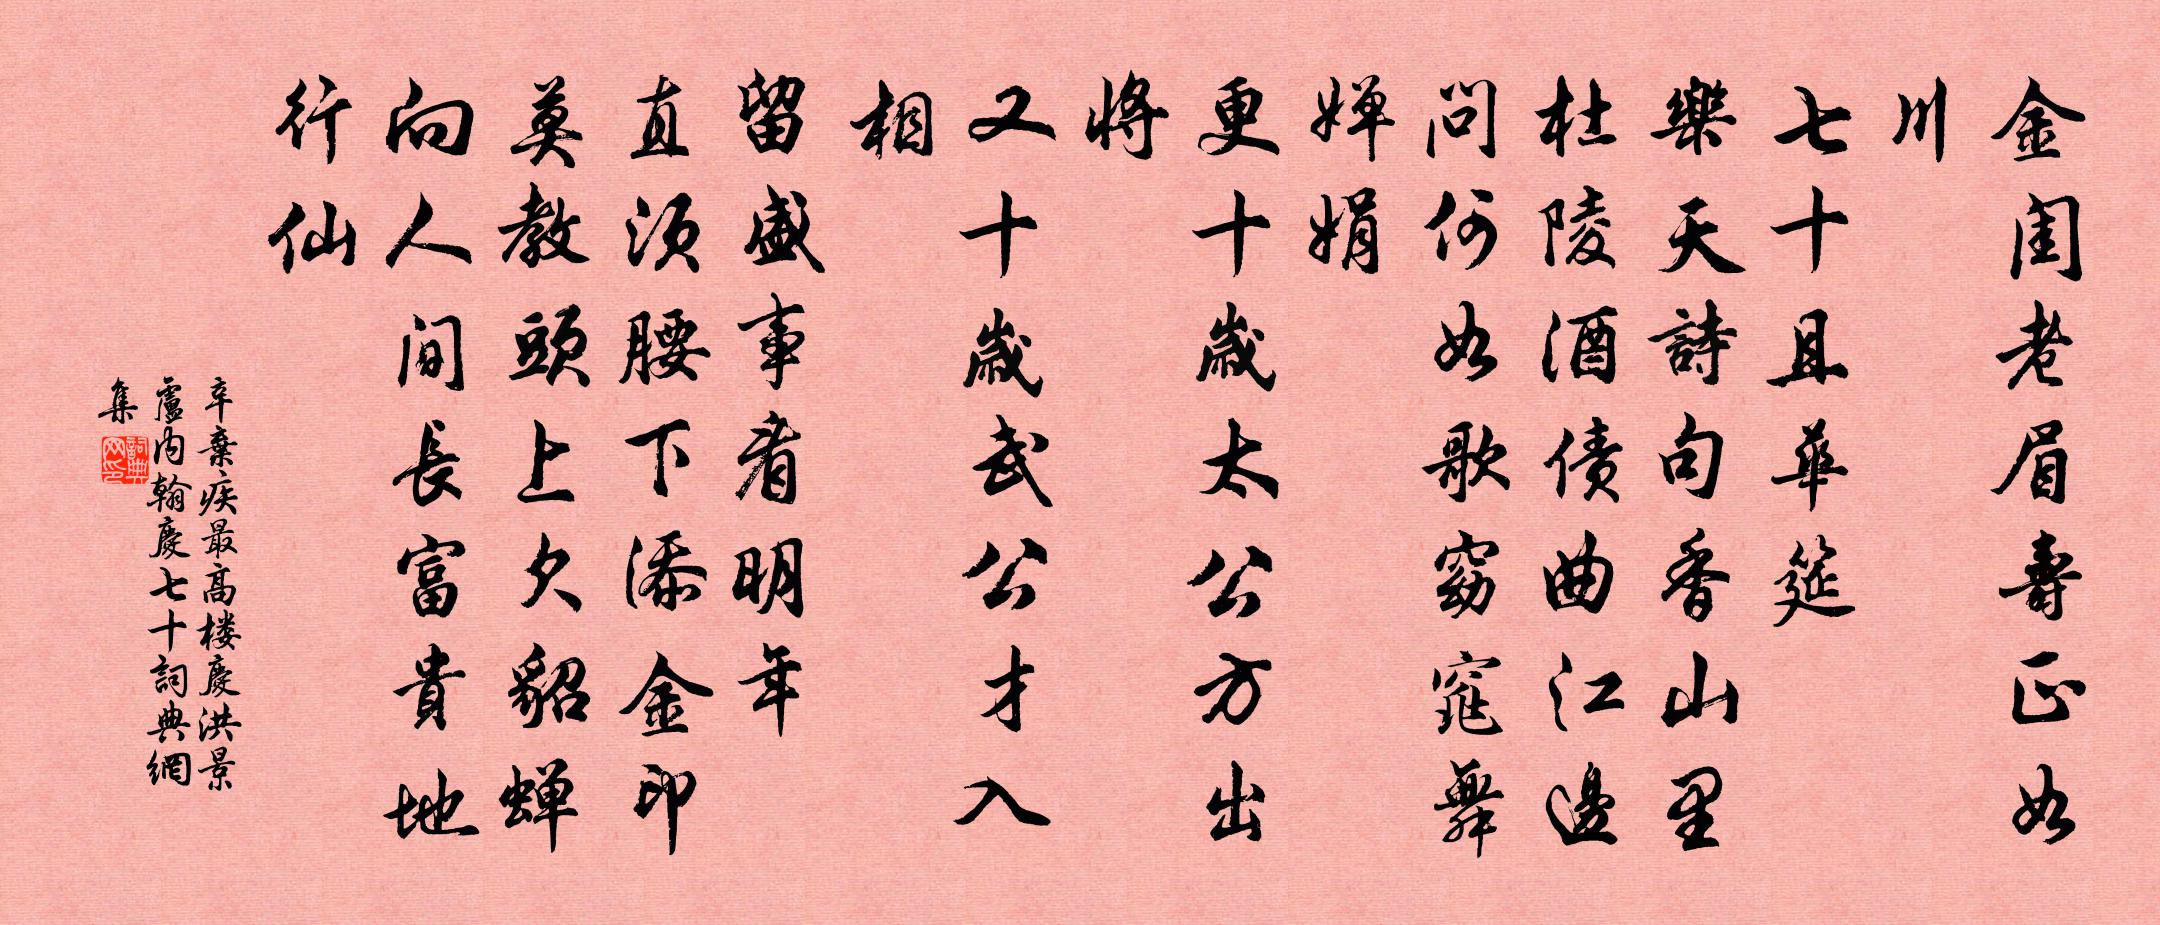 金閨老眉壽正如
川
七十且華筵
樂天詩句香山里
杜陵酒債曲江邊
問何如歌窈窕舞
嬋娟
更十歲太公方出
將
又十歲武公才入
相
留盛事看明年
直須腰下添金印
莫教頭上欠貂蟬
向人間長富貴地
行仙
辛棄疾最高楼慶洪景
廬內翰慶七十詞典網
集
詞典网印